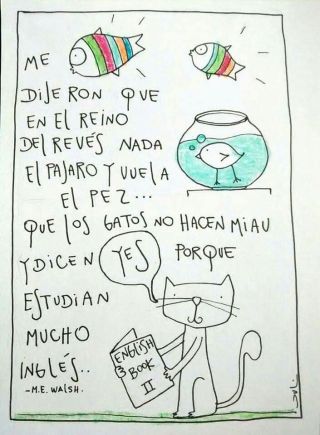 ME
DIJERON QUE
EN EL REINO
DEL REVÉS NADA
EL PAJARO Y VUELA
EL PEZ...
QUE LOS GATOS NO HACEN MIAU
Y DICEN YES PORQUE
ESTUDIAN
MUCHO
INGLÉS..
-M.E. WALSH.
ENGLISH
BOOK
II